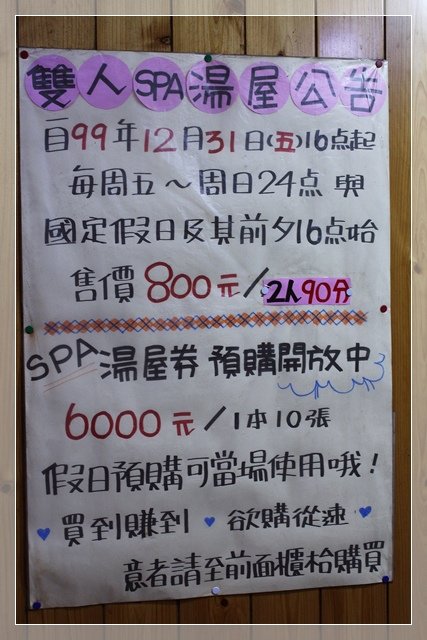 雙人SPA湯屋公告
自99年12月31日(五)16点起
每周五~周日24点與
國定假日及其前夕16点始
售價800元/2人90分
SPA湯屋券預購開放中
6000元/1本10張
假日預購可當場使用哦!
買到賺到 欲購從速
意者請至前面櫃枱購買